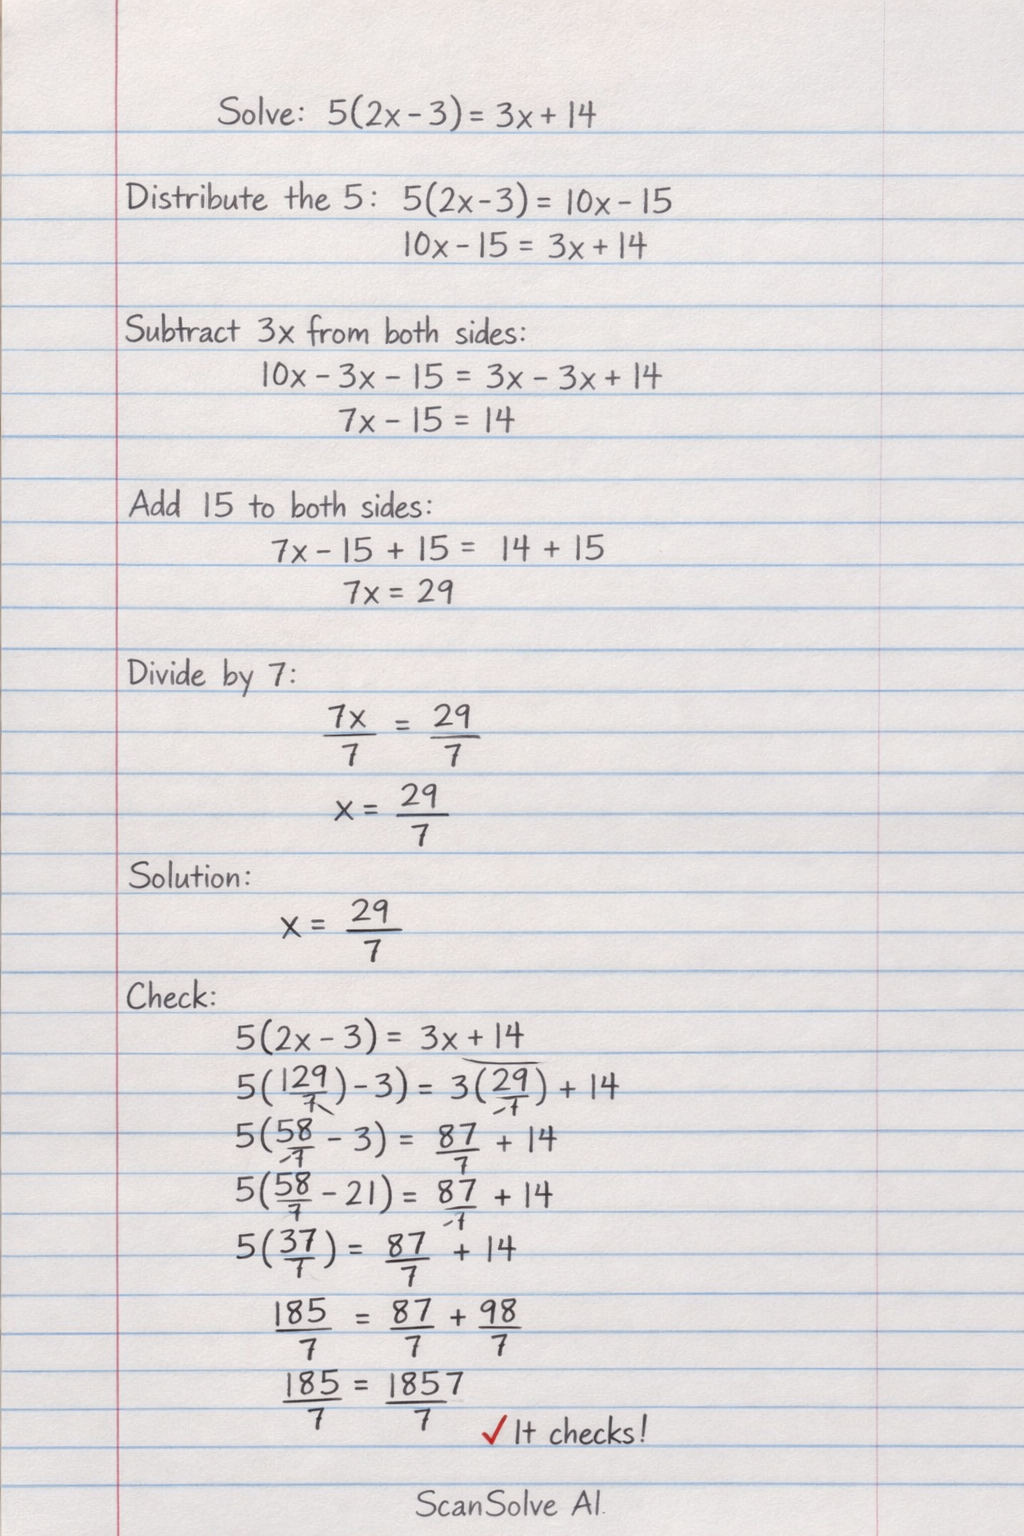 Solve: 5(2x - 3) = 3x + 14
Distribute the 5: 5(2x - 3) = 10x - 15
10x - 15 = 3x + 14
Subtract 3x from both sides:
10x - 3x - 15 = 3x - 3x + 14
7x - 15 = 14
Add 15 to both sides:
7x - 15 + 15 = 14 + 15
7x = 29
Divide by 7:
7x/7 = 29/7
x = 29/7
Solution:
x = 29/7
Check:
5(2x - 3) = 3x + 14
5(129/7) - 3) = 3(29/7) + 14
5(58/7 - 3) = 87/7 + 14
5(58/7 - 21) = 87/7 + 14
5(37/7) = 87/7 + 14
185/7 = 87/7 + 98/7
185/7 = 1857/7
✓ It checks!
ScanSolve AI.